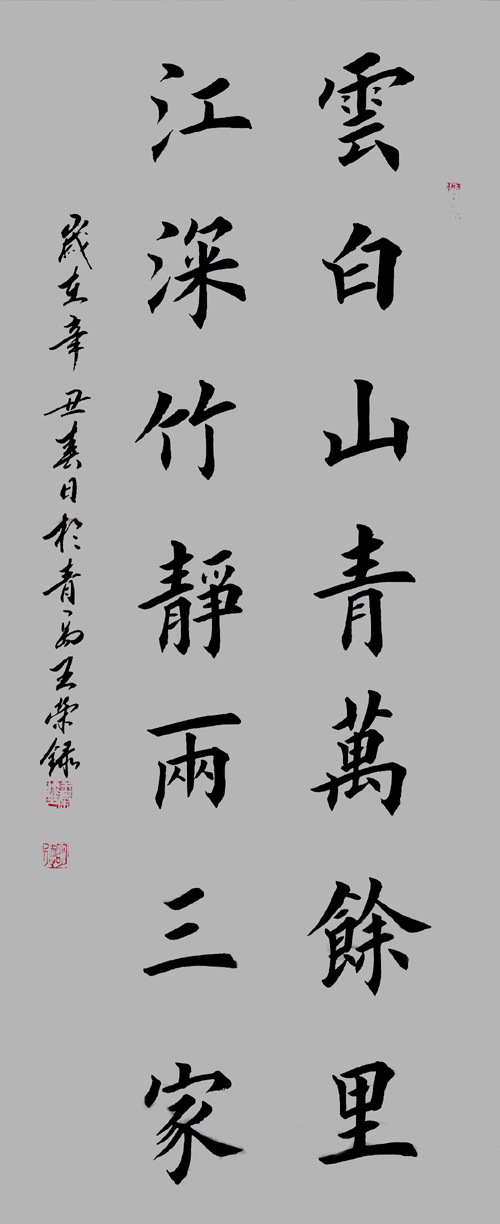 雲白山青萬餘里
江深竹靜兩三家
歲在辛丑春日於青島王榮錄